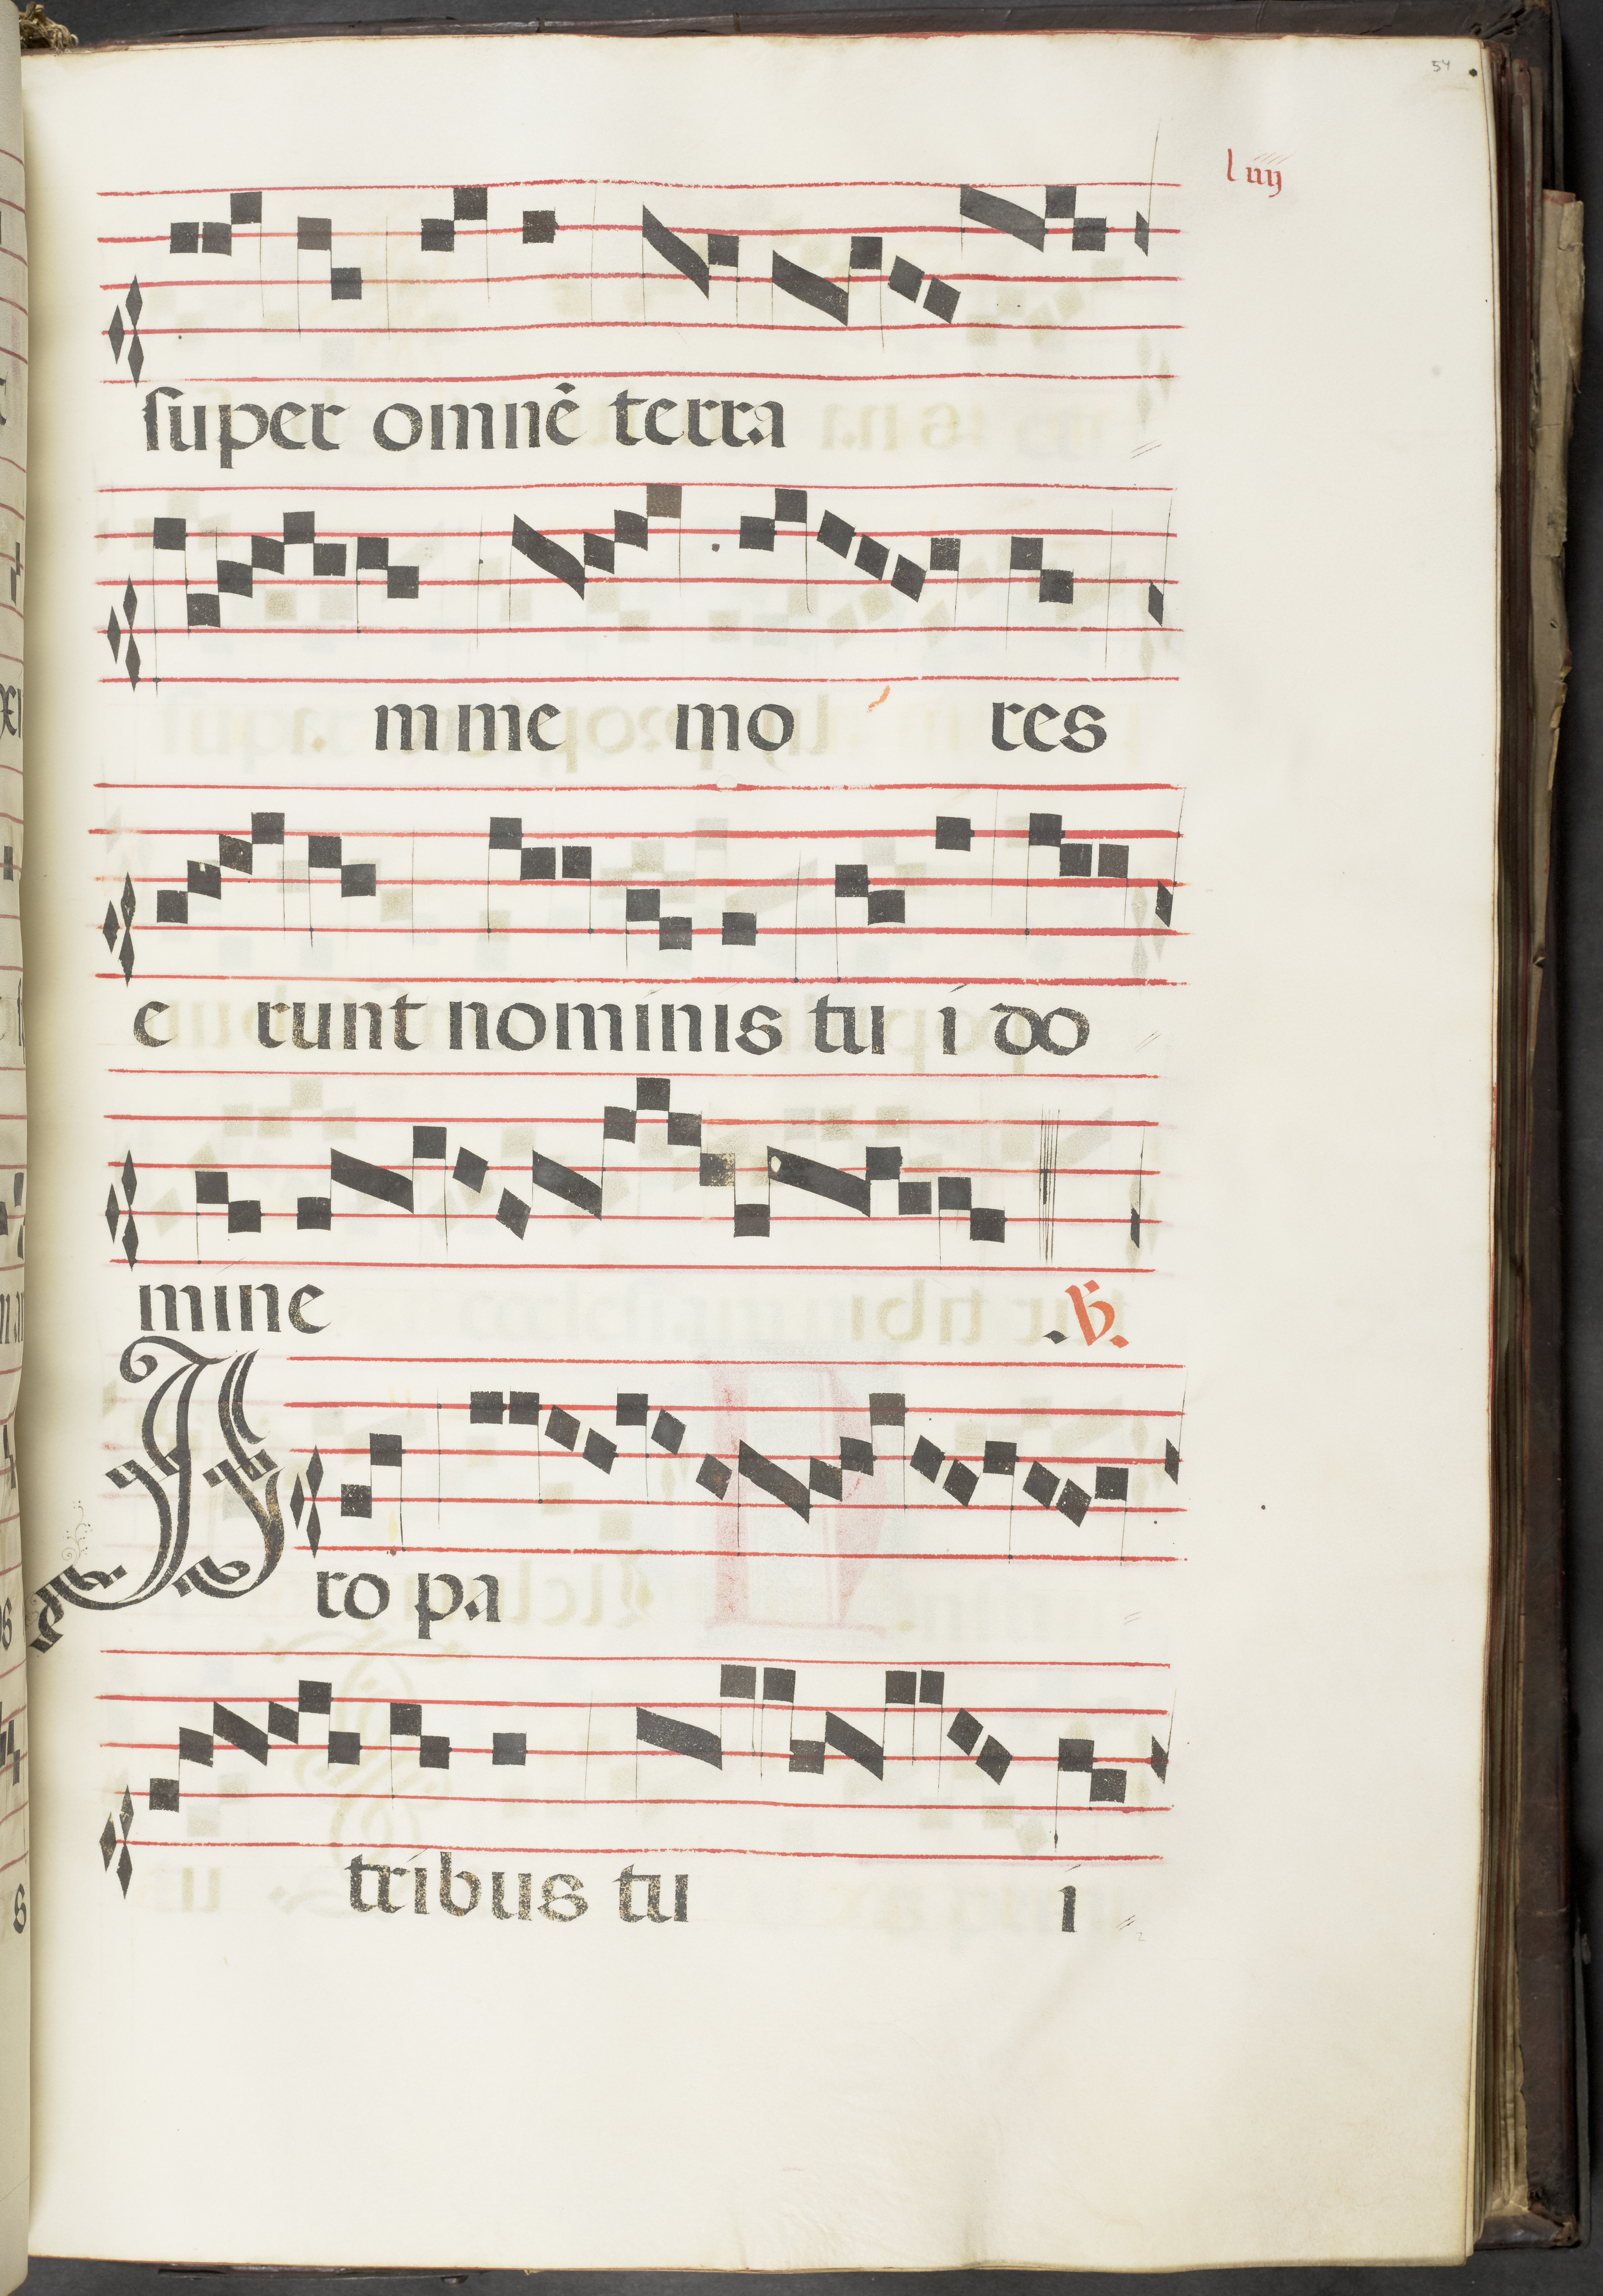 54
l iiij
super omnē terra
mme mo res
e runt nominis tu i do
mine
.V.
P ro pa
tribus tu i